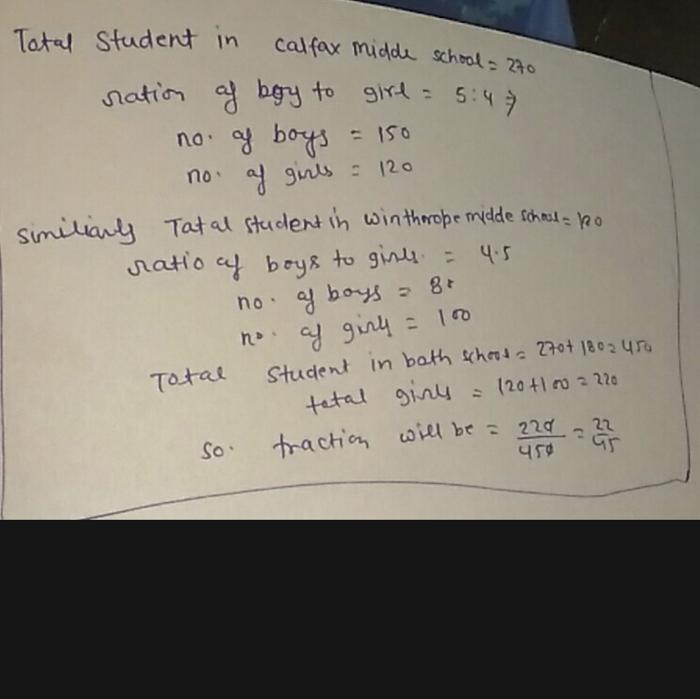 Total Student in Calfax midde school = 270
ration of boy to girl = 5:4 ⇒
no. of boys = 150
no. of girls = 120
similiarly Total student in winthorope midde school = 180
ratio of boys to girls = 4.5
no. of boys = 80
no. of girls = 100
Total Student in both school = 270+180=450
total girls = 120+100=220
so. fraction will be = 220/450 = 22/45